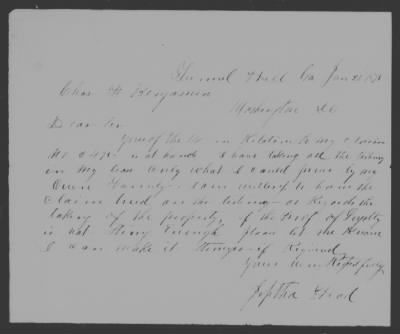 Tunnel Hill Ga Jan 21 187
Chas F Benjamin
Washington DC
Dear Sir
Yours of the in Relation to my claim
at hand I have taking all the testimony
in my case only what I could prove by my
own Family I am willing to have the
claim tried on the testimony as Regards the
taking of the property if the Proof of Loyalty
is not Strong Enough please let me know
I can make it Stronger if Required
Yours Very Respectfully
Jeptha Head